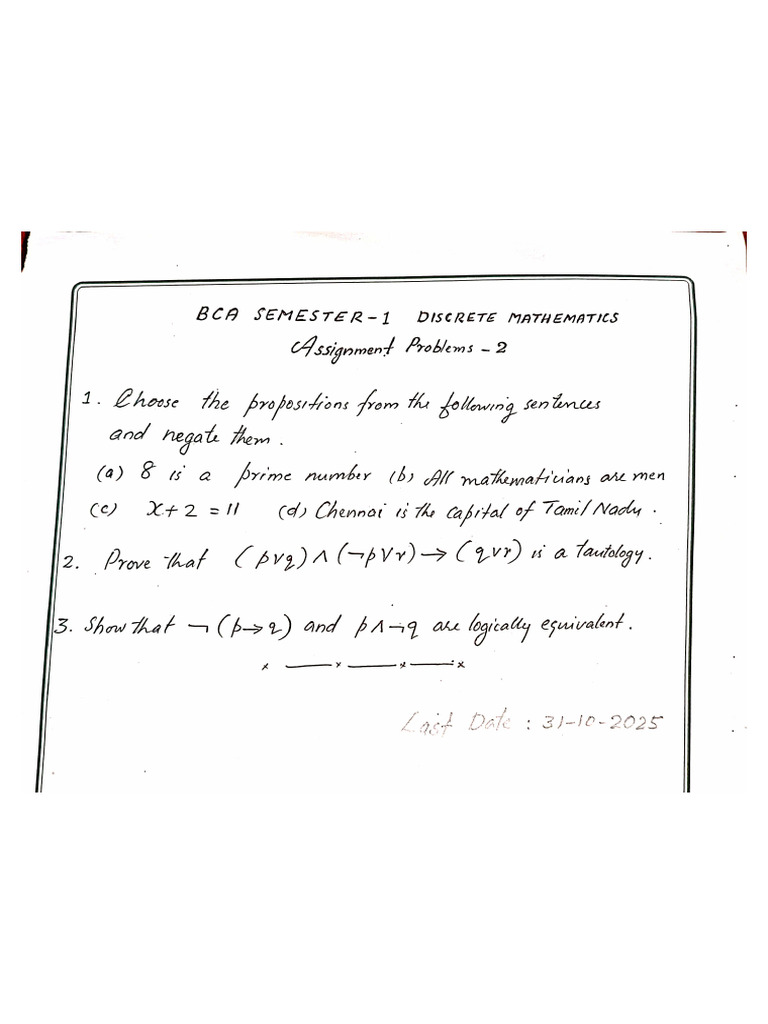 BCA SEMESTER-1 DISCRETE MATHEMATICS
Assignment Problems - 2
1. Choose the propositions from the following sentences
and negate them.
(a) 8 is a prime number (b) All mathematicians are men
(c) x + 2 = 11 (d) Chennai is the capital of Tamil Nadu.
2. Prove that (p∨q) ∧ (¬p∨r) → (q∨r) is a tautology.
3. Show that ¬(p→q) and p∧¬q are logically equivalent.
Last Date : 31-10-2025